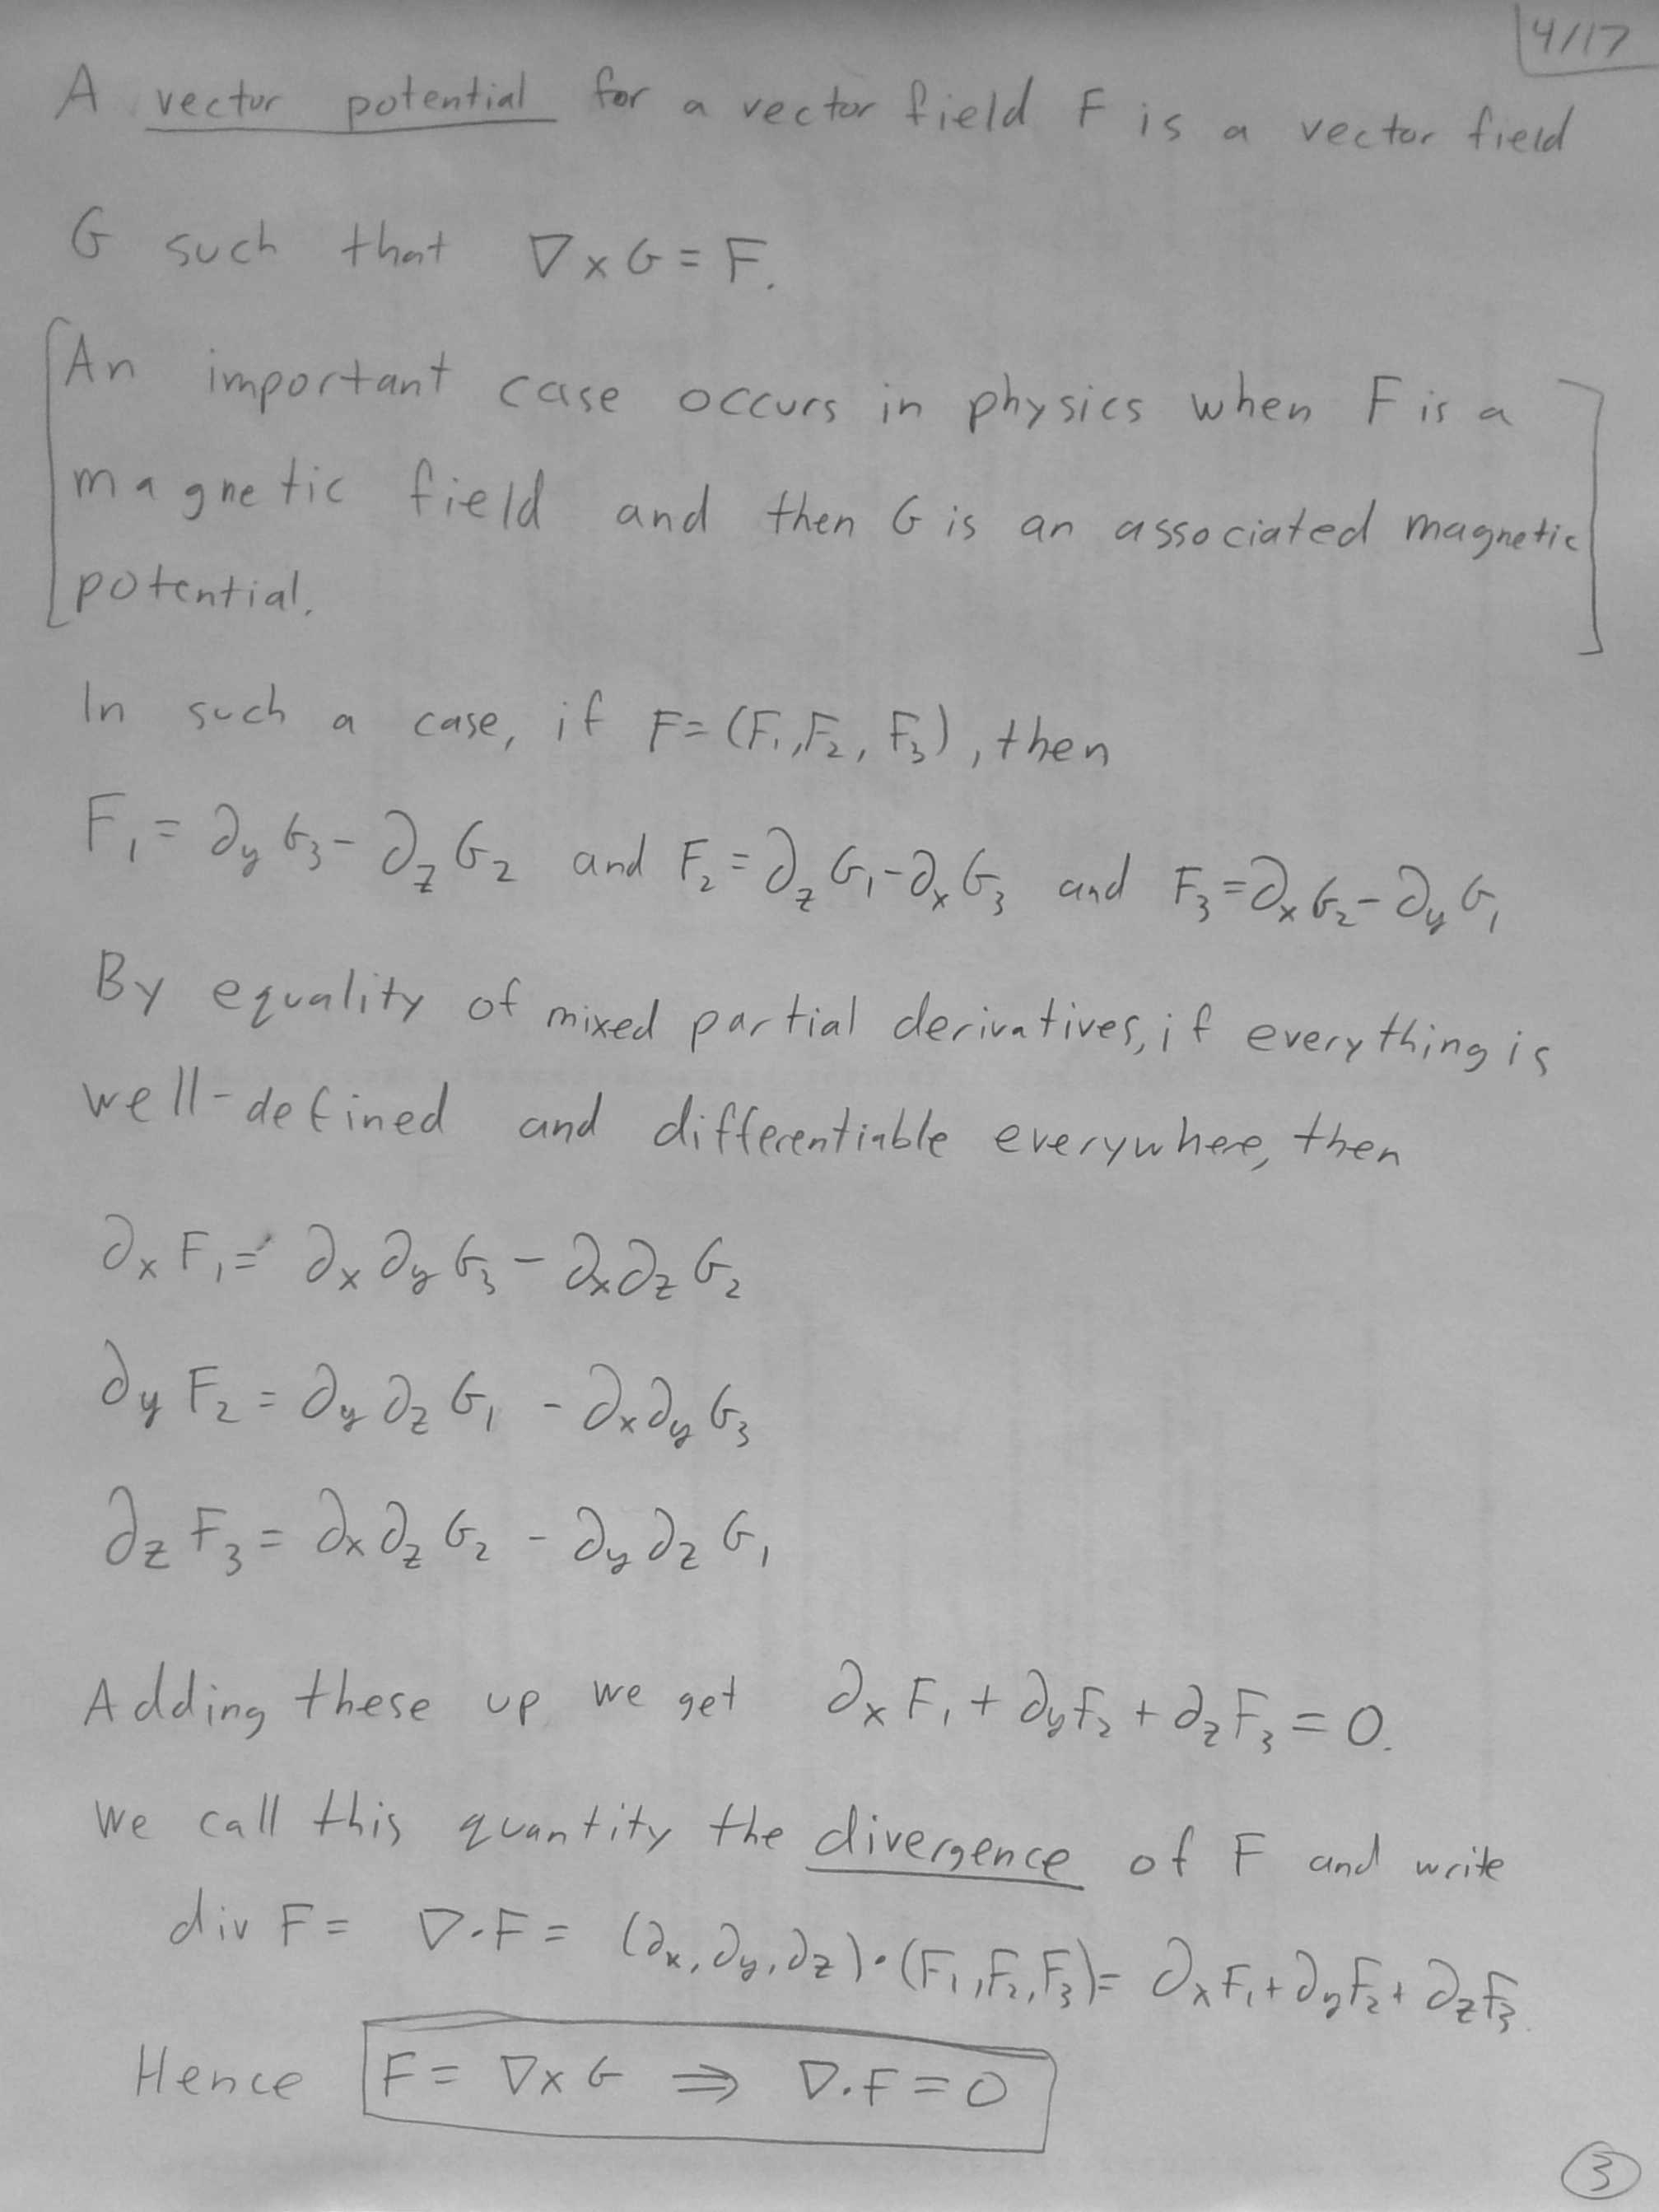 4/17
A vector potential for a vector field F is a vector field
G such that ∇×G=F.
[An important case occurs in physics when F is a
magnetic field and then G is an associated magnetic
potential.]
In such a case, if F=(F₁,F₂,F₃), then
F₁=∂yG₃-∂zG₂ and F₂=∂zG₁-∂xG₃ and F₃=∂xG₂-∂yG₁
By equality of mixed partial derivatives, if everything is
well-defined and differentiable everywhere, then
∂xF₁=∂x∂yG₃-∂x∂zG₂
∂yF₂=∂y∂zG₁-∂x∂yG₃
∂zF₃=∂x∂zG₂-∂y∂zG₁
Adding these up we get ∂xF₁+∂yF₂+∂zF₃=0.
We call this quantity the divergence of F and write
div F= ∇·F= (∂x,∂y,∂z)·(F₁,F₂,F₃)= ∂xF₁+∂yF₂+∂zF₃.
Hence F=∇×G ⇒ ∇·F=0
3